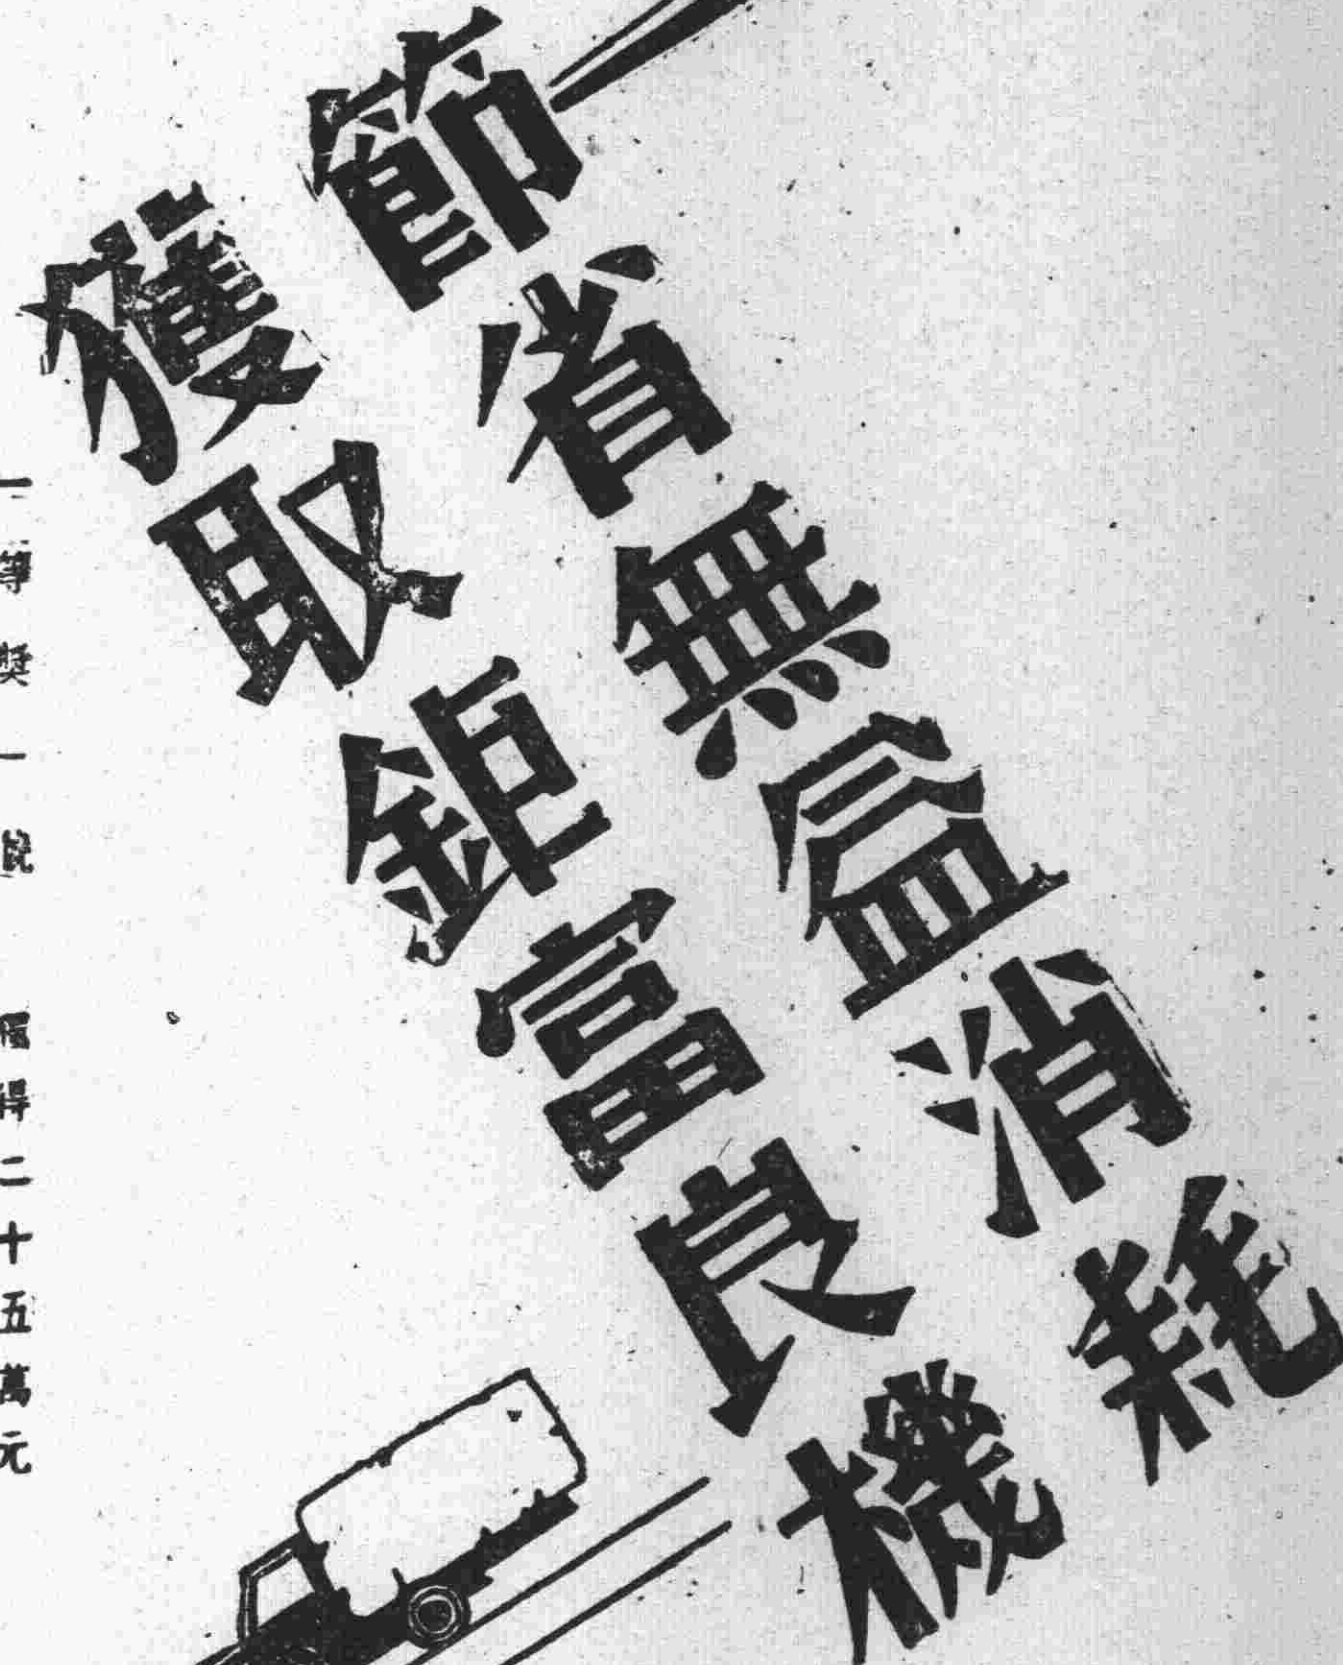 節省無益消耗
獲取鉅富良機
一等獎一號 獨得二十五萬元